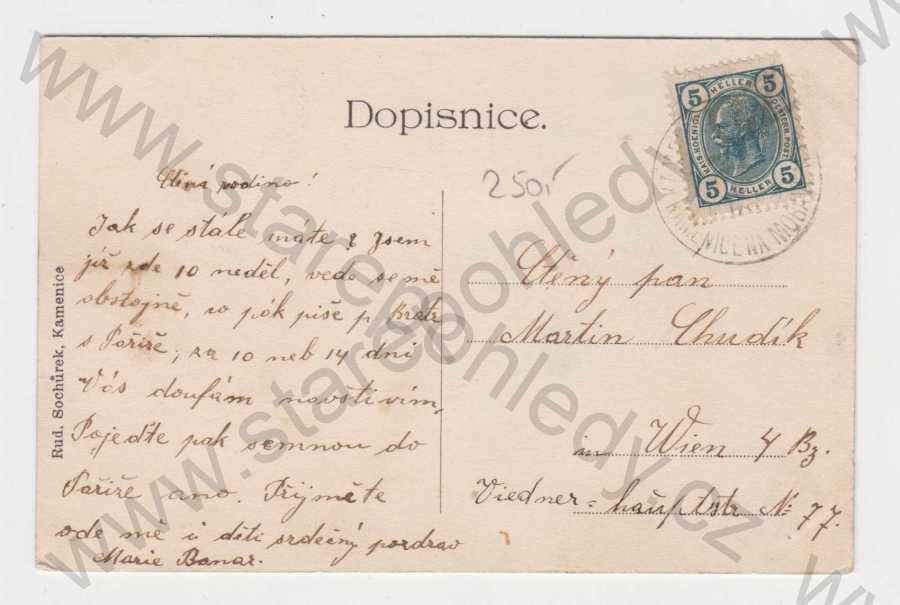 Dopisnice.
250,-
5 HELLER 5
KAIS. KOENIGL.
OESTERR. POST
5 HELLER 5
KAMENICE NA MOR
Ctěná rodino!
Jak se stále máte? Jsem
již zde 10 neděl, vede se mě
obstojně, co pák píše p. Bretr
s Paříže; za 10 neb 14 dní
Vás doufám navštívím,
Pojeďte pak semnou do
Paříže ano. Přijměte
ode mě i dětí srdečný pozdrav
Marie Banar.
Ctěný pan
Martin Chudík
in Wien 4 Bz.
Viedner=hauptstr № 77.
Rud. Sochůrek, Kamenice
www.starepohledy.cz